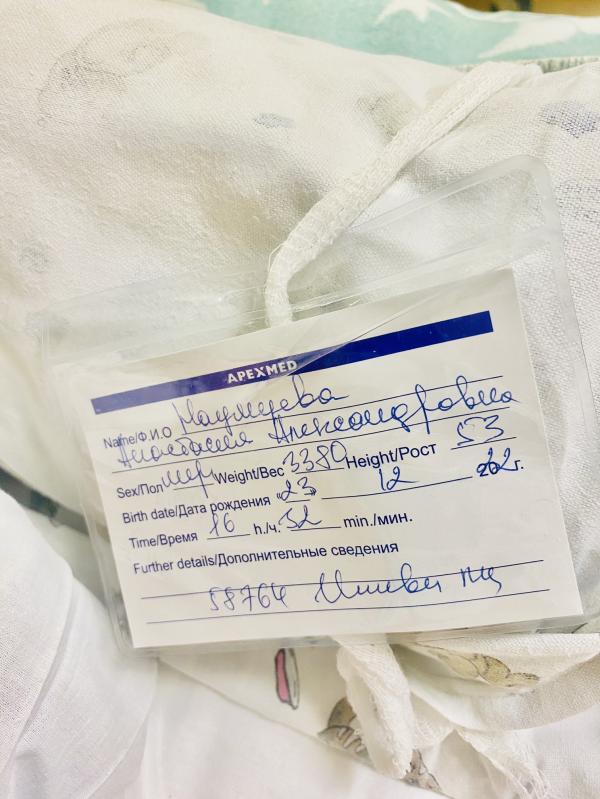 APEXMED
Name/Ф.И.О
Анастасия Александровна
Sex/Пол Weight/Вес 3380 Height/Рост 53
Birth date/Дата рождения "23" 12 2022г.
Time/Время 16 h./ч. 52 min./мин.
Further details/Дополнительные сведения
58764